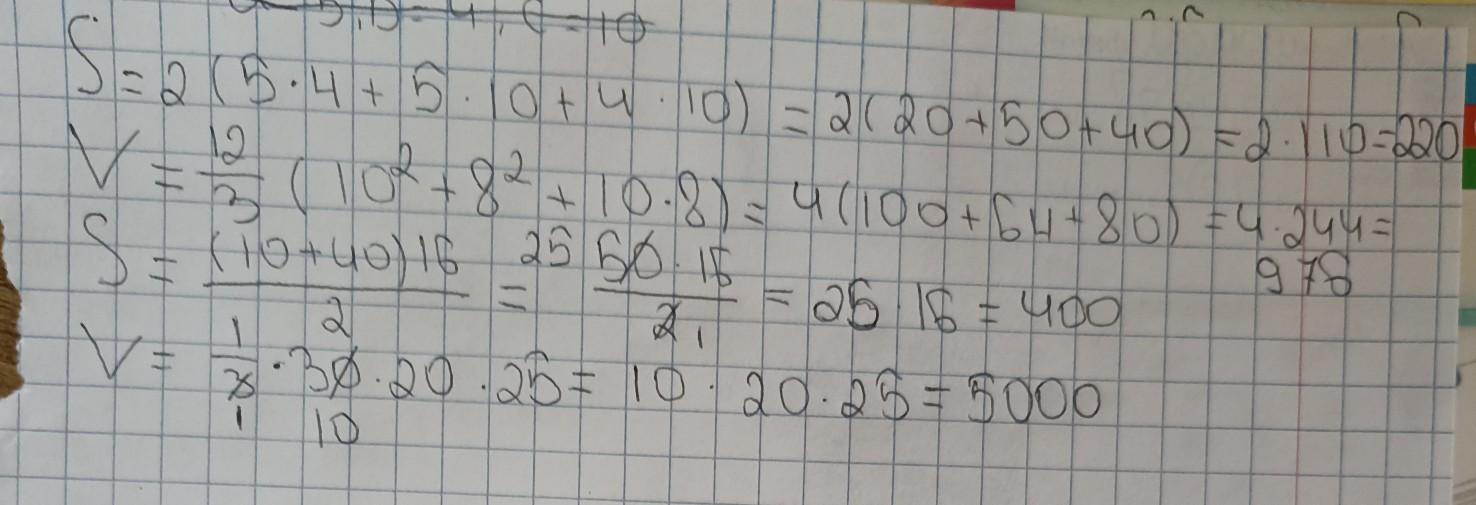 S = 2 (5·4 + 5·10 + 4·10) = 2(20+50+40) = 2·110 = 220
V = 12/3 (10² + 8² + 10·8) = 4(100+64+80) = 4·244 =
976
S = (10+40)16/2 = 25 50·16/2 1 = 25 16 = 400
V = 1/3 · 30 · 20 · 25 = 10 · 20 · 25 = 5000
1 10